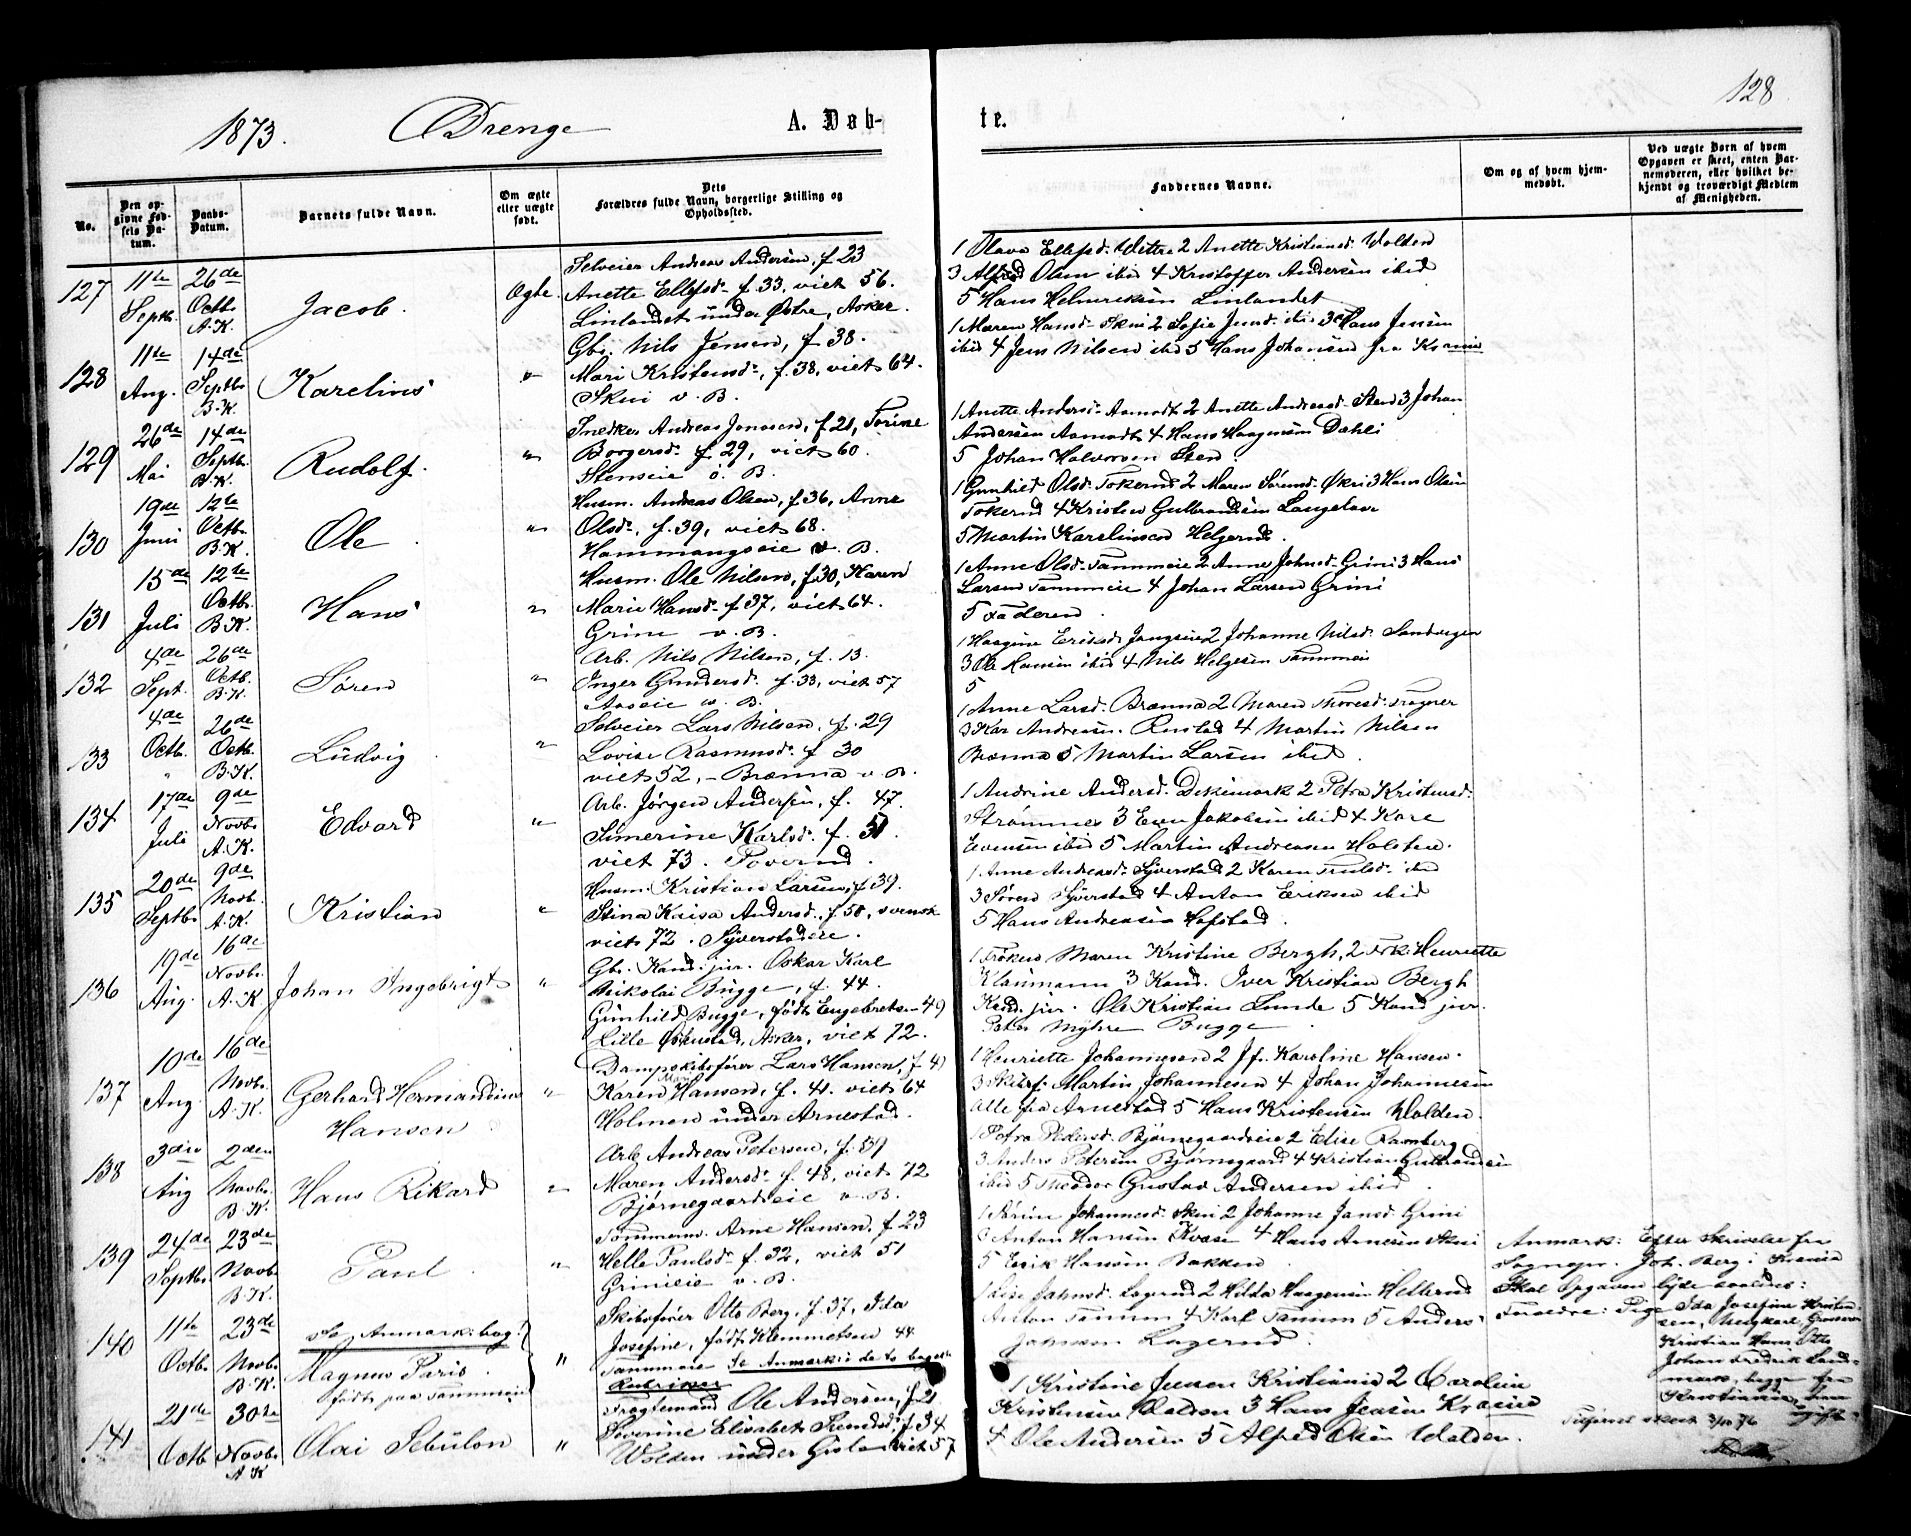 128
1873. Drenge A. Døb- te.
No.
Den op-
givne Fød-
sels Da-
tum.
Daabs-
Datum.
Barnets fulde Navn.
Om ægte
eller uægte
født.
Dets
Forældres fulde Navn, borgerlige Stilling og
Opholdssted.
Faddernes Navne.
Om og af hvem hjem-
medøbt.
Ved uægte Børn af hvem
Opgaven er skeet, enten Bar-
nemoderen, eller hvilket be-
kjendt og troværdigt Medlem
af Menigheden.
127 11te Septb. 26de Octb. A.K. Jacob. Ægte.
Selveier Andreas Andersen, f. 23
Anette Ellefsd. f. 33, viet 56.
Linlandet under Østre, Asker.
1 Olava Ellefsd. Wettre 2 Anette Kristiansd. Wolden
3 Alfred Olsen ibid 4 Kristoffer Andersen ibid
5 Hans Helmreksen Linlandet
128 11te Aug. 14de Septb. B.K. Karelius "
Gbr. Nils Jensen, f. 38.
Mari Kristensd., f. 38, viet 64.
Skui v. B.
1 Maren Hansd. Skui 2 Sofie Jensd. ibid 3 Hans Jensen
ibid 4 Jens Nilsen ibid 5 Hans Johansen fra Krania
129 26de Mai 14de Septb. B.K. Rudolf. "
Snedker Andreas Jonasen, f. 21, Torine
Borgersd. f. 29, viet 60.
Stenseie ö. B.
1 Anette Andersd. Aamodt 2 Anette Andreasd. Sten 3 Johan
Andersen Aamodt 4 Hans Haagensen Dahli
5 Johan Halvorsen Sten.
130 19de Juni 12te Octb. B.K. Ole "
Husm. Andreas Olsen, f. 36, Anne
Olsd., f. 39, viet 68.
Hammangseie v. B.
1 Gunhild Olsd. Tokerud 2 Maren Sørensd. Økri 3 Hans Olsen
Tokerud 4 Kristen Gulbrandsen Langelaar
5 Martin Karelinsen Helgerud.
131 15de Juli 12te Octb. B.K. Hans "
Husm. Ole Nilsen, f. 30, Karen
Marie Hansd. f. 37, viet 64.
Grini v. B.
1 Anne Olsd. Tanumeie 2 Anne Johnsd. Grini 3 Hans
Larsen Tanumeie 4 Johan Larsen Grini
5 Faderen.
132 4de Sept. 26de Octb. B.K. Søren "
Arb. Nils Nilsen, f. 13.
Inger Gundersd. f. 33, viet 57
Aaseie v. B.
3 Ole Hansen ibid 4 Nils Helgesen Tanumeie
5
133 4de Octb. 26de Octb. B.K. Ludvig "
Selveier Lars Nilsen, f. 29
Lovise Rasmusd. f. 30
viet 52, - Brænna v. B.
1 Anne Larsd. Brænna 2 Maren Thoresd. Tragner
3 Kar Andreasen Rustad 4 Martin Nilsen
Brænna 5 Martin Larsen ibid.
134 17de Juli 9de Novbr. A.K. Edvard "
Arb. Jørgen Andersen, f. 47.
Simerine Karlsd. f. 51.
viet 73. Toverud.
1 Andrine Andersd. Dikemark 2 Petra Kristensd.
Strømmen 3 Even Jakobsen ibid 4 Kare
Evensen ibid 5 Martin Andreasen Holsten.
135 20de Septbr. 9de Novb. A.K. Kristian "
Husm. Kristian Larsen, f. 39.
Stina Kaisa Andersd., f. 50, svensk
viet 72. Syverstadeie.
1 Anne Andreasd. Syverstad 2 Karen Trulsd. ibid
3 Søren Syverstad 4 Anton Eriksen ibid
5 Hans Andreasen Hofstad.
136 19de Aug. 16de Novbr. A.K. Johan Ingebrigt "
Gbr. Kand. jur. Oskar Karl
Nikolai Bugge, f. 44.
Gunhild Bugge, født Engebretsen 49
Lille Øskestad, Asker, viet 72.
1 Frøken Maren Kristine Bergh, 2 Frk. Henriette
Klaumann 3 Kand. Iver Kristian Bergh
Kand. jur. Ole Kristian Lunde 5 Kand jur.
Peter Myhre Bugge.
137 10de Aug. 16de Novb. A.K. Gerhard Hermandius
Hansen "
Dampskibsfører Lars Hansen, f. 41
Karen Marie Hansen, f. 41. viet 64
Holmen under Arnestad.
1 Henriette Johannesen 2 Jfr. Karoline Hansen.
3 Skibsf. Martin Johannesen 4 Johan Johannesen
Alle fra Arnestad 5 Hans Kristensen Wolden.
138 3die Aug 2den Novbr. B.K. Hans Rikard "
Arb. Andreas Petersen, f. 39
Maren Andersd. f. 48, viet 72
Bjørnegaardseie v. B.
1 Petra Pedersd. Bjørnegaardseie 2 Elise Ramberg
3 Anders Petersen Bjørnegaard 4 Kristian Gulbrandsen
ibid 5 Theodor Gustav Andersen ibid.
139 24de Septbr. 23de Novb. B.K. Paul. "
Tømmerm. Arne Hansen, f. 23
Helle Paulsd. f. 32, viet 51
Grinieie v. B.
1 Sørine Johannesd. Skui 2 Johanne Jansd. Grini
3 Anton Hansen Kvase 4 Hans Arnesen Skui
5 Erik Hansen Bakken.
140 11te Octb. 23de Novb. B.K. se Anmærk. bag!
Magnus Paris.
født paa Tanumeie "
Skibsfører Otto Berg, f. 37, Ida
Josefine, født Klemmetsen 44
Tanumeie Se Anmærkn. i de to bageste
Rubriker
1 Lise Johnsd. Lagerud 2 Hilda Haagensen Hellerud
Anton Tanum 4 Karl Tanum 5 Anders
Johnsen Lagerud.
Anmærk: Efter Skrivelse fra
Sognepr. Joh. Berg i Krania
skal Opgaven lyde saaledes:
Forældre: Pige Ida Josefine Kristen-
sen, Ungkarl, Grosserer
Kristian Hans Otto
Johan Fredrik Land-
mark, begge fra
Kristiania,
Tilført skeet 3/10 76
141 21de Octb 30te Novbr. A.K. Olai Sebulon "
Fragtemand Ole Andersen, f. 21
Severine Elisabet Svendsd., f. 34
Wolden under Gisle viet 57
1 Kristine Jensen Kristiania 2 Caroline
Kristensen Wolden 3 Hans Jensen Krania
4 Ole Andersen 5 Alfred Olsen Wolden.